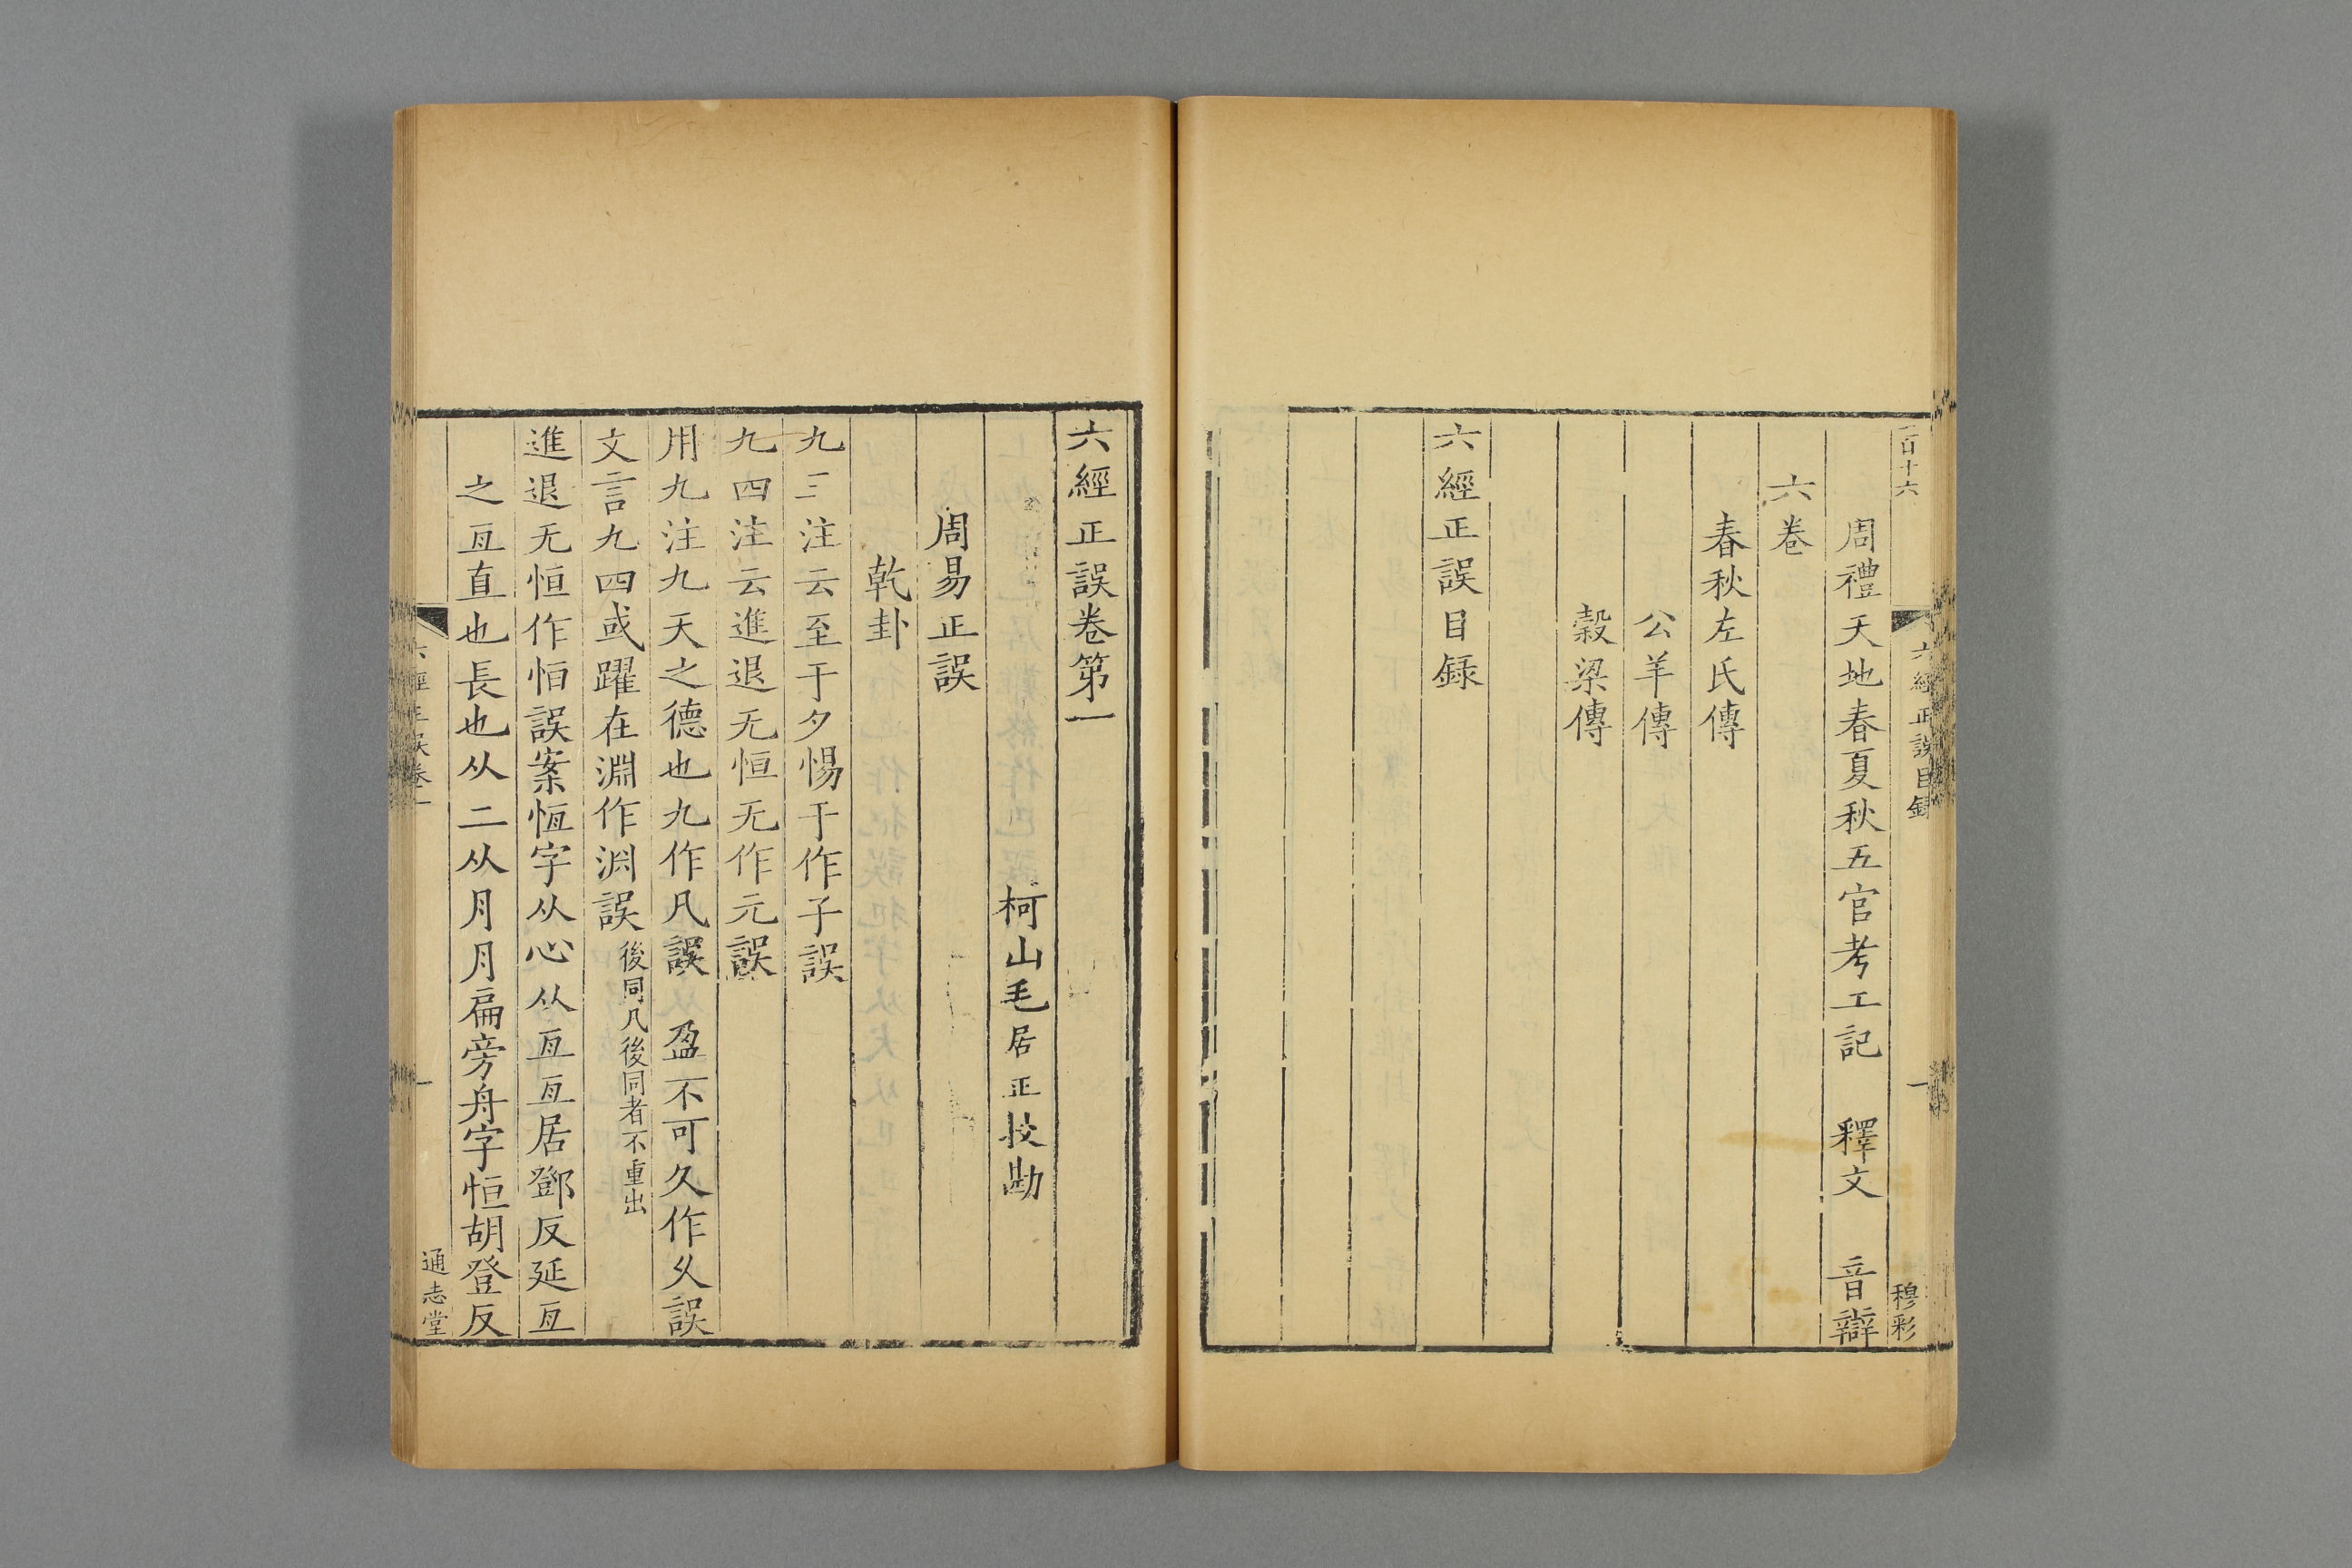 二百十六
六經正誤目録
一
穆彩
周禮天地春夏秋五官考工記 釋文 音辯
六卷
春秋左氏傳
公羊傳
穀梁傳
六經正誤目録
六經正誤卷第一
柯山毛居正校勘
周易正誤
乾卦
九三注云至于夕惕于作子誤
九四注云進退无恒无作元誤
用九注九天之德也九作凡誤 盈不可久作乆誤
文言九四或躍在淵作渊誤後同凡後同者不重出
進退无恒作恒誤案恆字从心从亙亙居鄧反延亙
之亙直也長也从二从月月扁旁舟字恒胡登反
六經正誤卷一
一
通志堂